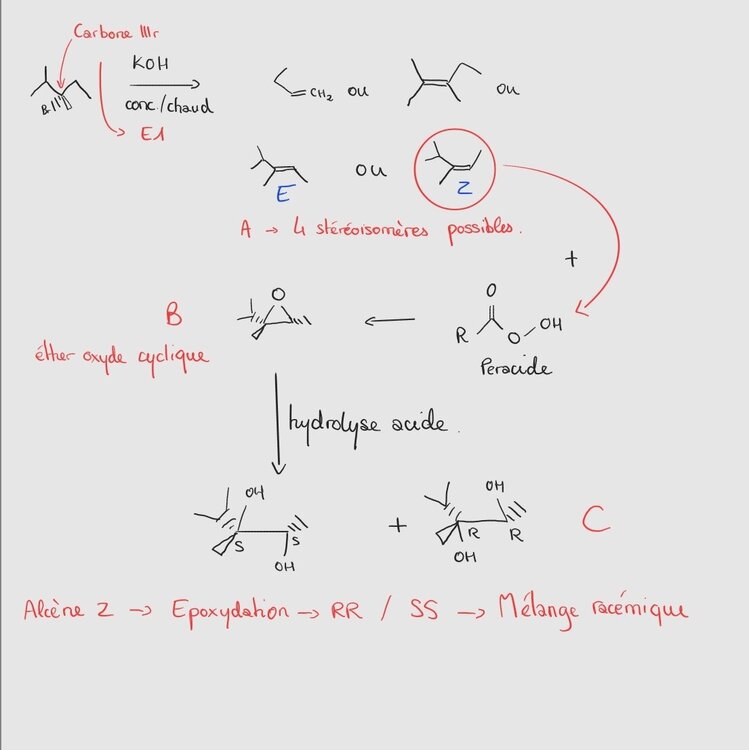 Carbone IIIr
KOH
conc./chaud
Br
E1
CH₂ ou
ou
E
ou
Z
A → 4 stéréoisomères possibles.
+
B
O
éther oxyde cyclique
O
R
O
OH
Peracide
hydrolyse acide.
OH
S
S
OH
+
OH
R
R
OH
C
Alcène Z → Epoxydation → RR / SS → Mélange racémique